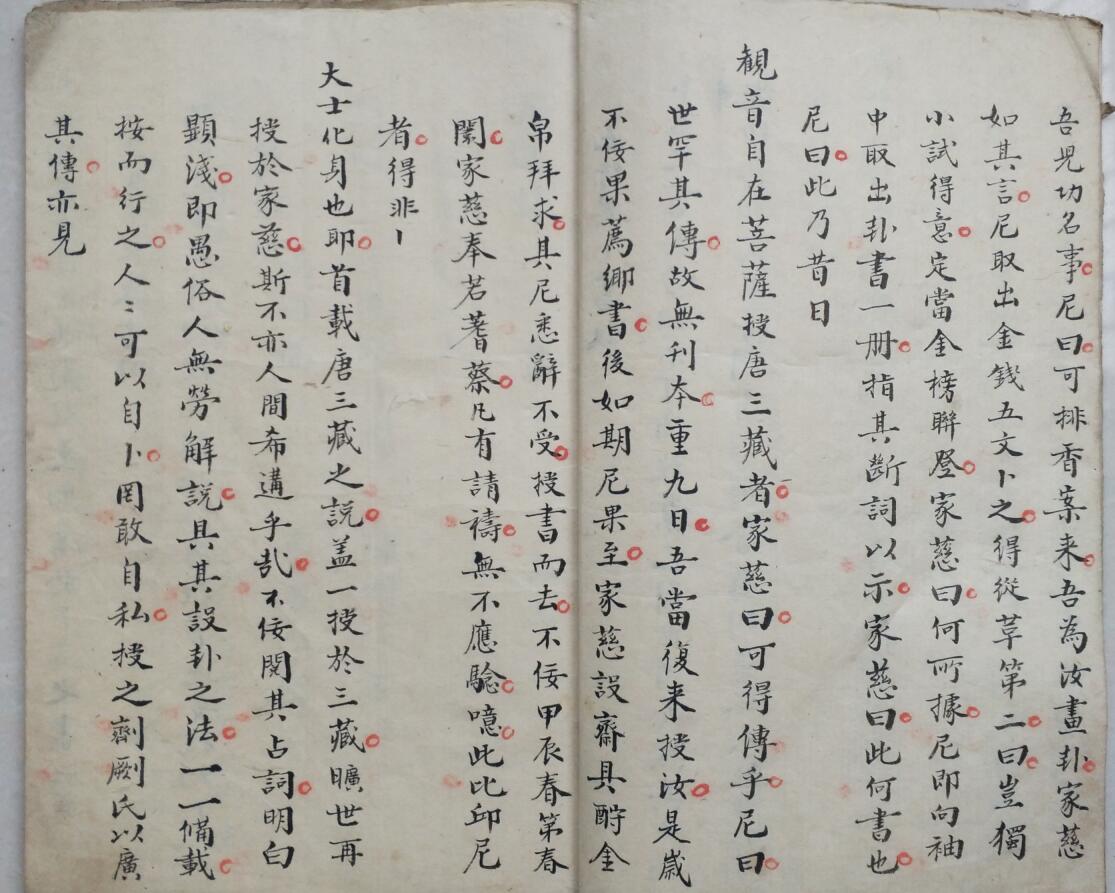 吾児功名事尼曰可排香案来吾為汝畫卦家慈
如其言尼取出金錢五文卜之得從革第二曰豈獨
小試得意定當金榜聨登家慈曰何所據尼即向袖
中取出卦書一册指其斷詞以示家慈曰此何書也
尼曰此乃昔日
観音自在菩薩授唐三藏者家慈曰可得傳乎尼曰
世罕其傳故無刊本重九日吾當復来授汝是歲
不佞果薦鄉書後如期尼果至家慈設齋具酧金
帛拜求其尼悉辭不受授書而去不佞甲辰春第春
闈家慈奉若蓍蔡凡有請禱無不應驗噫此比邱尼
者得非丨
大士化身也耶首載唐三藏之説盖一授於三藏曠世再
授於家慈斯不亦人間希遘乎哉不佞閲其占詞明白
顕淺即愚俗人無勞解説具其設卦之法一一備載
按而行之人〻可以自卜罔敢自私授之劑劂氏以廣
其傳亦見